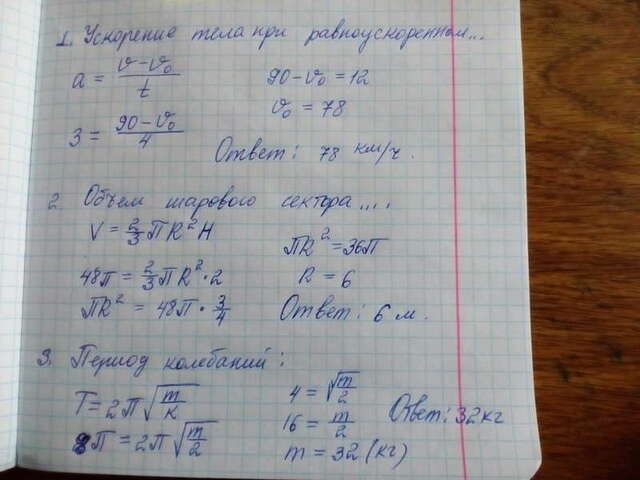 1. Ускорение тела при равноускоренном...
a = (v - v₀)/t
3 = (90 - v₀)/4
90 - v₀ = 12
v₀ = 78
Ответ: 78 км/ч.
2. Объем шарового сектора....
V = 2/3 ПR²H
48П = 2/3 ПR² · 2
ПR² = 48П · 3/4
ПR² = 36П
R = 6
Ответ: 6 м.
3. Период колебаний:
T = 2П√(m/k)
8П = 2П√(m/2)
4 = √(m/2)
16 = m/2
m = 32 (кг)
Ответ: 32 кг